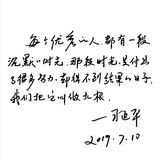 每个优秀的人,都有一段
沉默的时光。那段时光,是付出
了很多努力,却得不到结果的日子,
我们把它叫做扎根。
2019.7.10